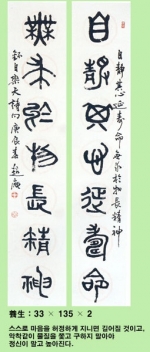 自靜其心延壽命
無求於物長精神
自靜其心延壽命 無求於物長精神
樂天詩句庚辰春
養生 : 33 × 135 × 2
스스로 마음을 허정하게 지니면 길어질 것이고,
악착같이 물질을 쫓고 구하지 않아야
정신이 맑고 높아진다.